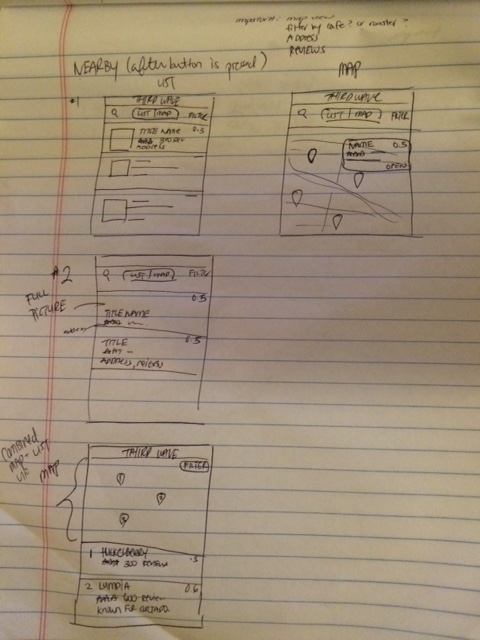 important: map view
filter by cafe? or roaster?
ADDRESS
REVIEWS
NEARBY (after button is pressed)
LIST
MAP
#1
THIRD WAVE
LIST | MAP
FILTER
TITLE NAME
0.5
300 REV
ADDRESS
THIRD WAVE
LIST | MAP
FILTER
NAME
0.5
OPEN
#2
LIST | MAP
FILTER
FULL
PICTURE
0.5
TITLE NAME
TITLE
0.5
ADDRESS, REVIEWS
COMBINED
MAP + LIST
VIEW
MAP
THIRD WAVE
FILTER
1
2
3
1 HUCKLEBERRY
.3
300 REVIEWS
2 LUMPIA
0.6
600 REVIEW
KNOWN FOR CORTADO